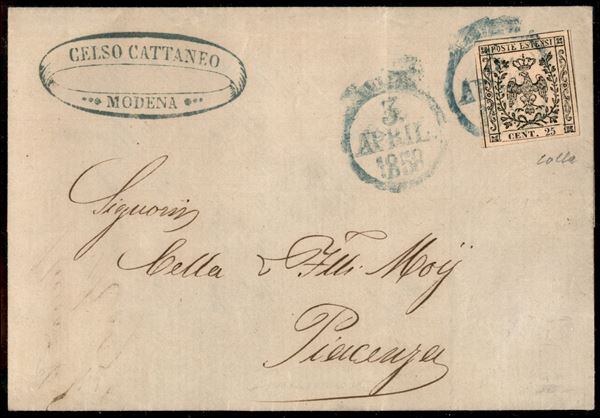 CELSO CATTANEO
MODENA
3.
APRIL.
1858
POSTE ESTENSI
CENT. 25
colla
Signori
Cella & Flli. Moÿ
Piacenza